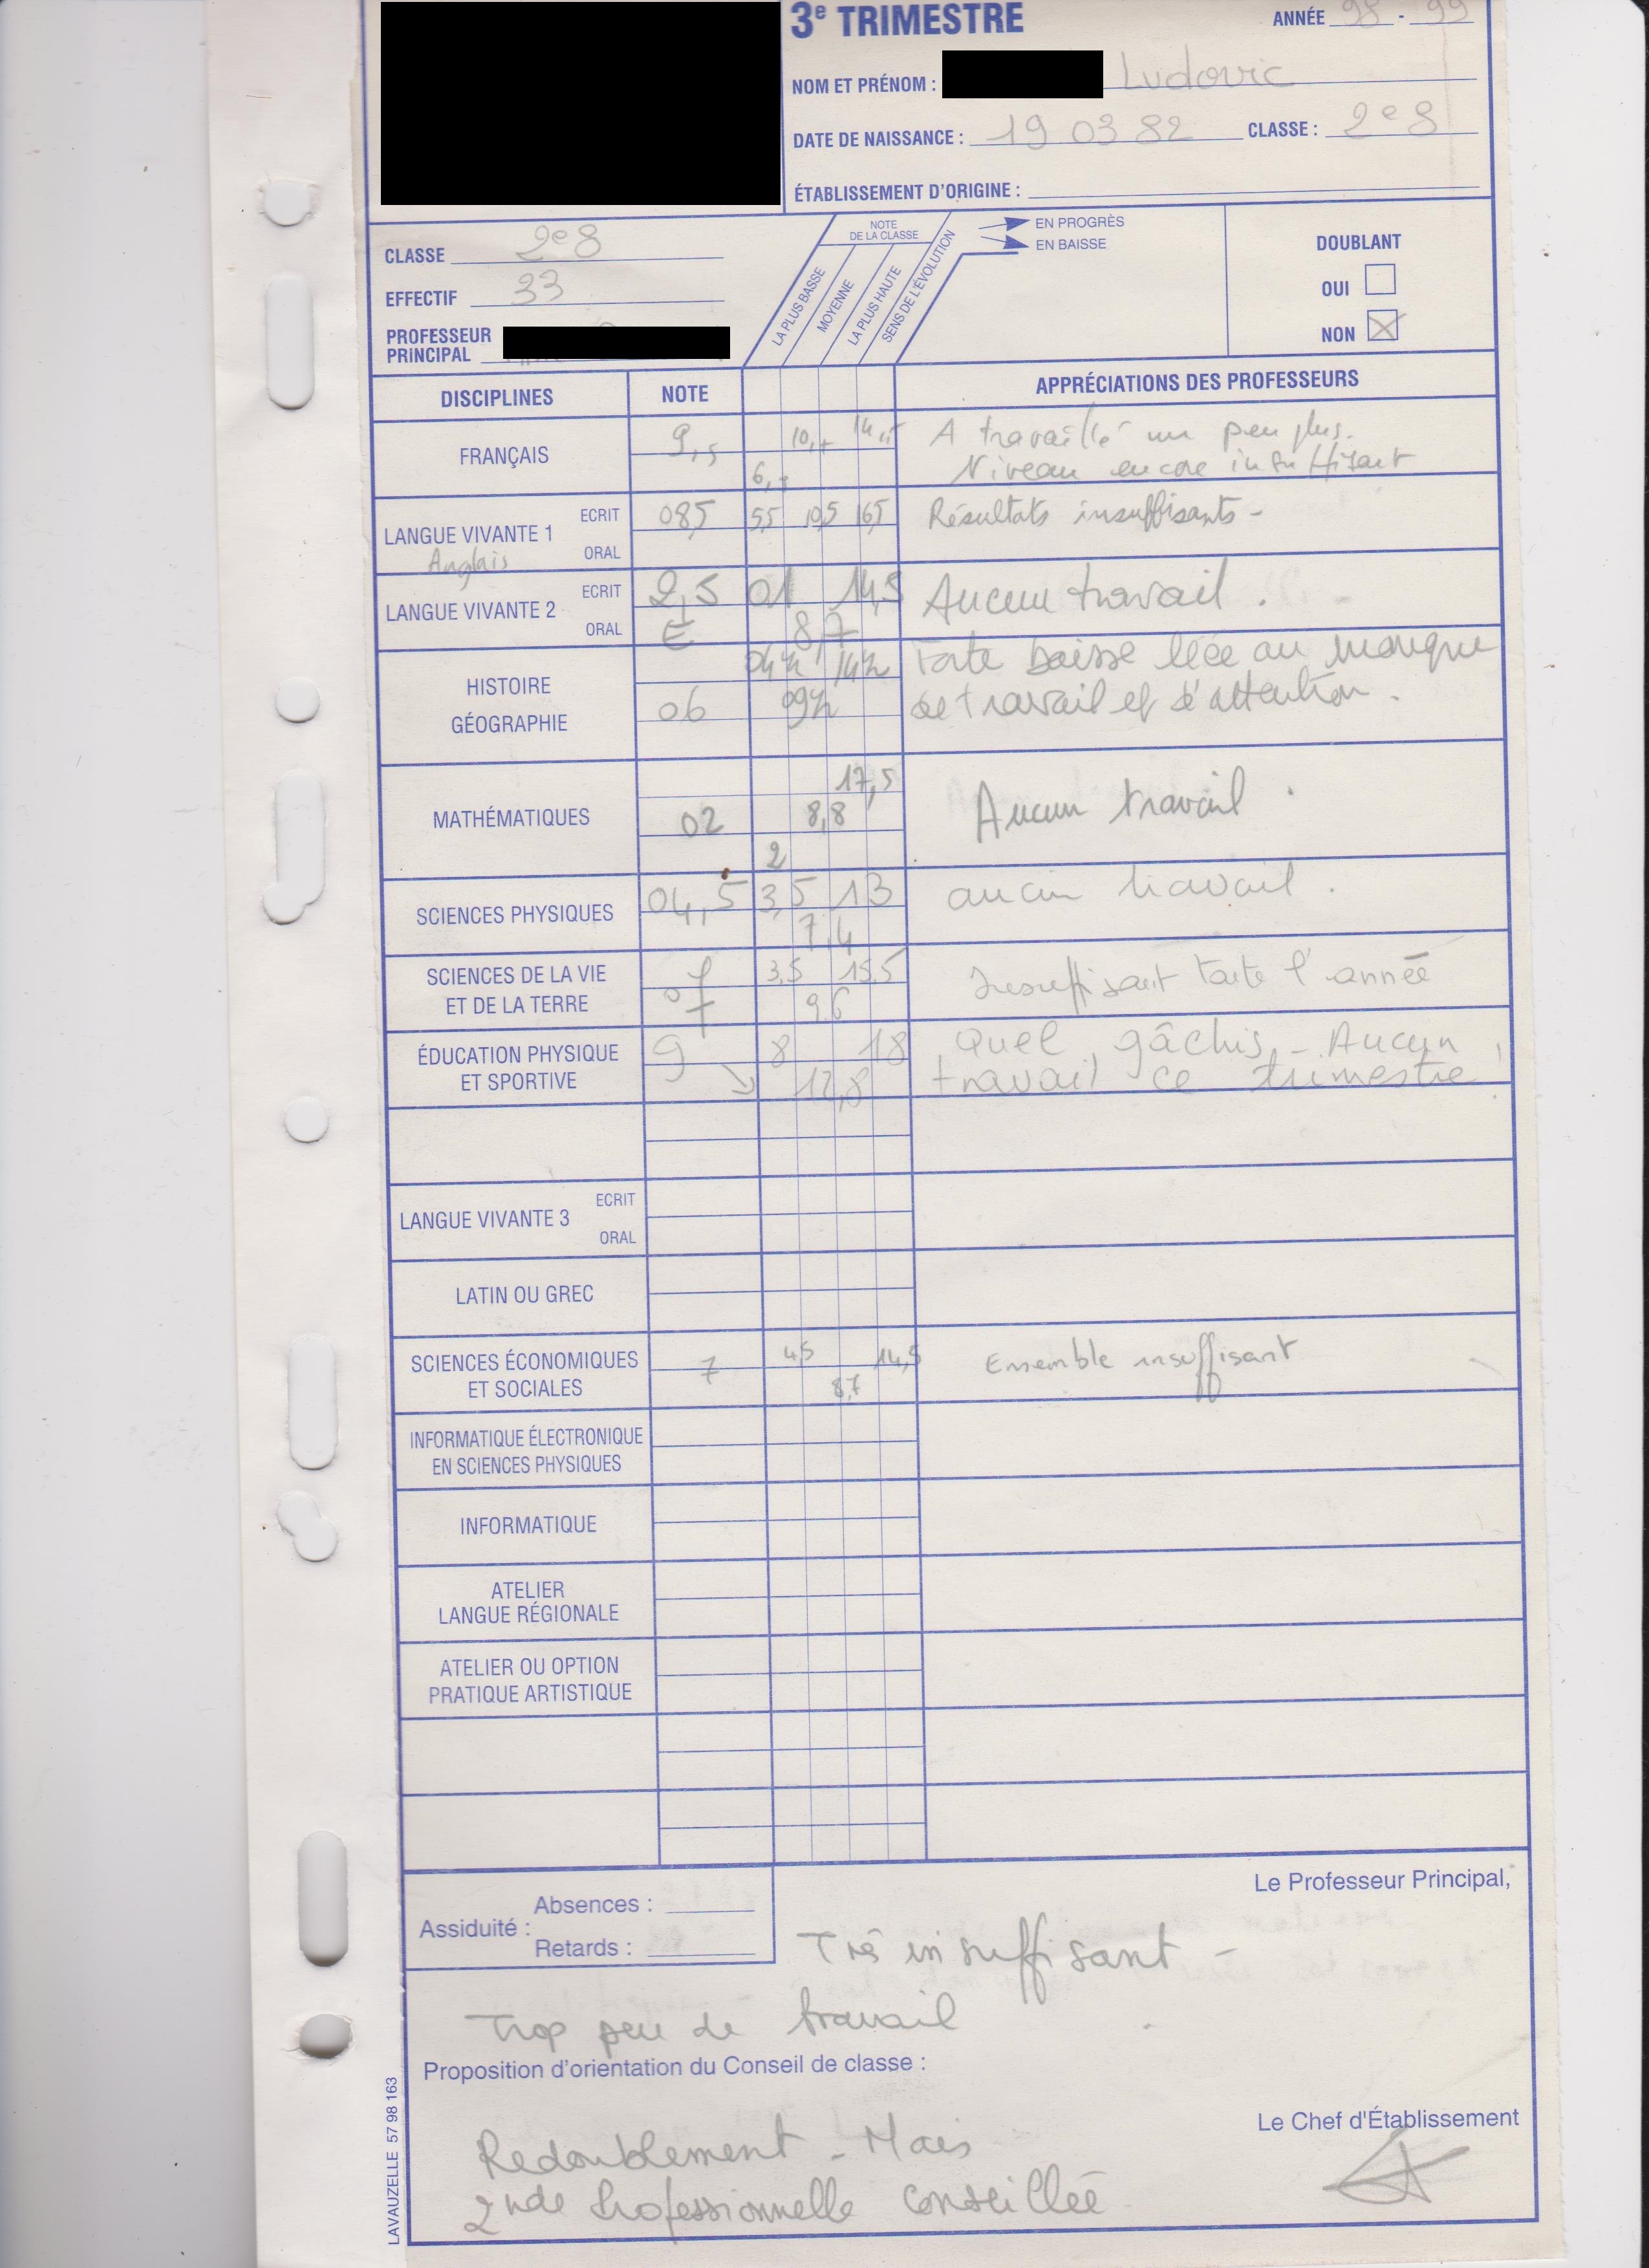 3e TRIMESTRE
ANNÉE 98 - 99
NOM ET PRÉNOM : Ludovic
DATE DE NAISSANCE : 19 03 82 CLASSE : 2e8
ÉTABLISSEMENT D'ORIGINE :
CLASSE 2e8
EFFECTIF 33
PROFESSEUR
PRINCIPAL
NOTE
DE LA CLASSE
LA PLUS BASSE
MOYENNE
LA PLUS HAUTE
SENS DE L'ÉVOLUTION
EN PROGRÈS
EN BAISSE
DOUBLANT
OUI
NON
DISCIPLINES NOTE APPRÉCIATIONS DES PROFESSEURS
FRANÇAIS 9,5 A travaillé un peu plus.
Niveau encore insuffisant
LANGUE VIVANTE 1 ECRIT 08,5 5,5 10,5 16,5 Résultats insuffisants -
Anglais ORAL
LANGUE VIVANTE 2 ECRIT 2,5 01 14,5 Aucun travail .
ORAL E 8,7
HISTOIRE Forte baisse liée au manque
GÉOGRAPHIE 06 de travail et d'attention .
17,5
MATHÉMATIQUES 02 8,8 Aucun travail .
2
SCIENCES PHYSIQUES 04,5 3,5 13 aucun travail .
7,4
SCIENCES DE LA VIE 07 3,5 15,5 Insuffisant toute l'année
ET DE LA TERRE 9,6
ÉDUCATION PHYSIQUE 9 8 18 Quel gâchis - Aucun
ET SPORTIVE 12,8 travail ce trimestre !
LANGUE VIVANTE 3 ECRIT
ORAL
LATIN OU GREC
SCIENCES ÉCONOMIQUES 7 4,5 14,5 Ensemble insuffisant
ET SOCIALES 8,7
INFORMATIQUE ÉLECTRONIQUE
EN SCIENCES PHYSIQUES
INFORMATIQUE
ATELIER
LANGUE RÉGIONALE
ATELIER OU OPTION
PRATIQUE ARTISTIQUE
Le Professeur Principal,
Assiduité : Absences :
Retards :
Très insuffisant -
Trop peu de travail
Proposition d'orientation du Conseil de classe :
Le Chef d'Établissement
Redoublement - Mais
2nde Professionnelle conseillée
LAVAUZELLE 57 98 163